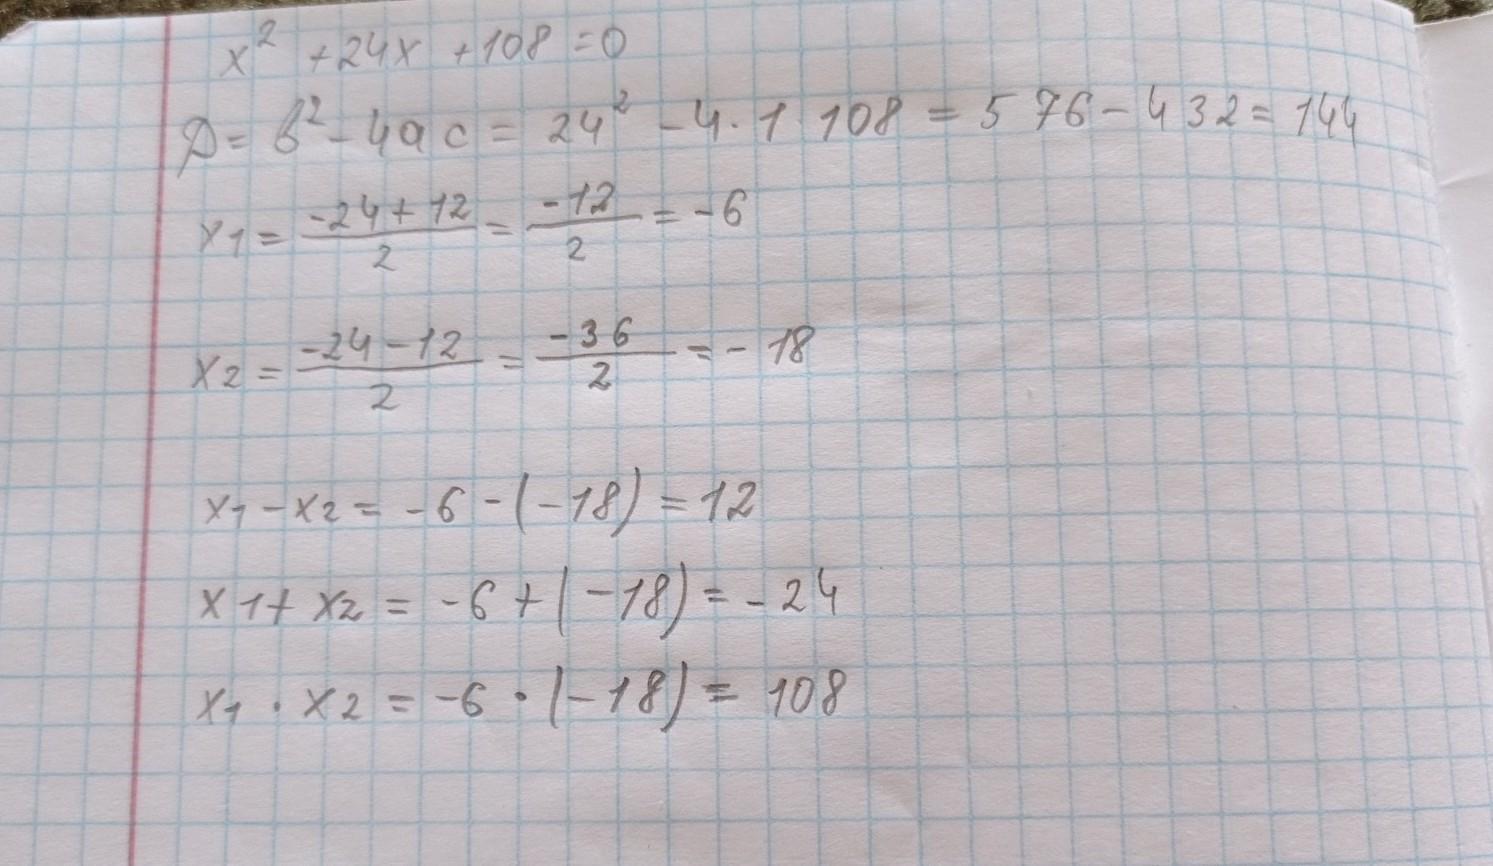 x² +24x +108 =0
D= b² - 4ac = 24² - 4·1 108 = 576 - 432 = 144
x1 = (-24+12)/2 = (-12)/2 = -6
x2 = (-24-12)/2 = (-36)/2 = -18
x1 - x2 = -6 - (-18) = 12
x1+x2 = -6 + (-18) = -24
x1 · x2 = -6 · (-18) = 108